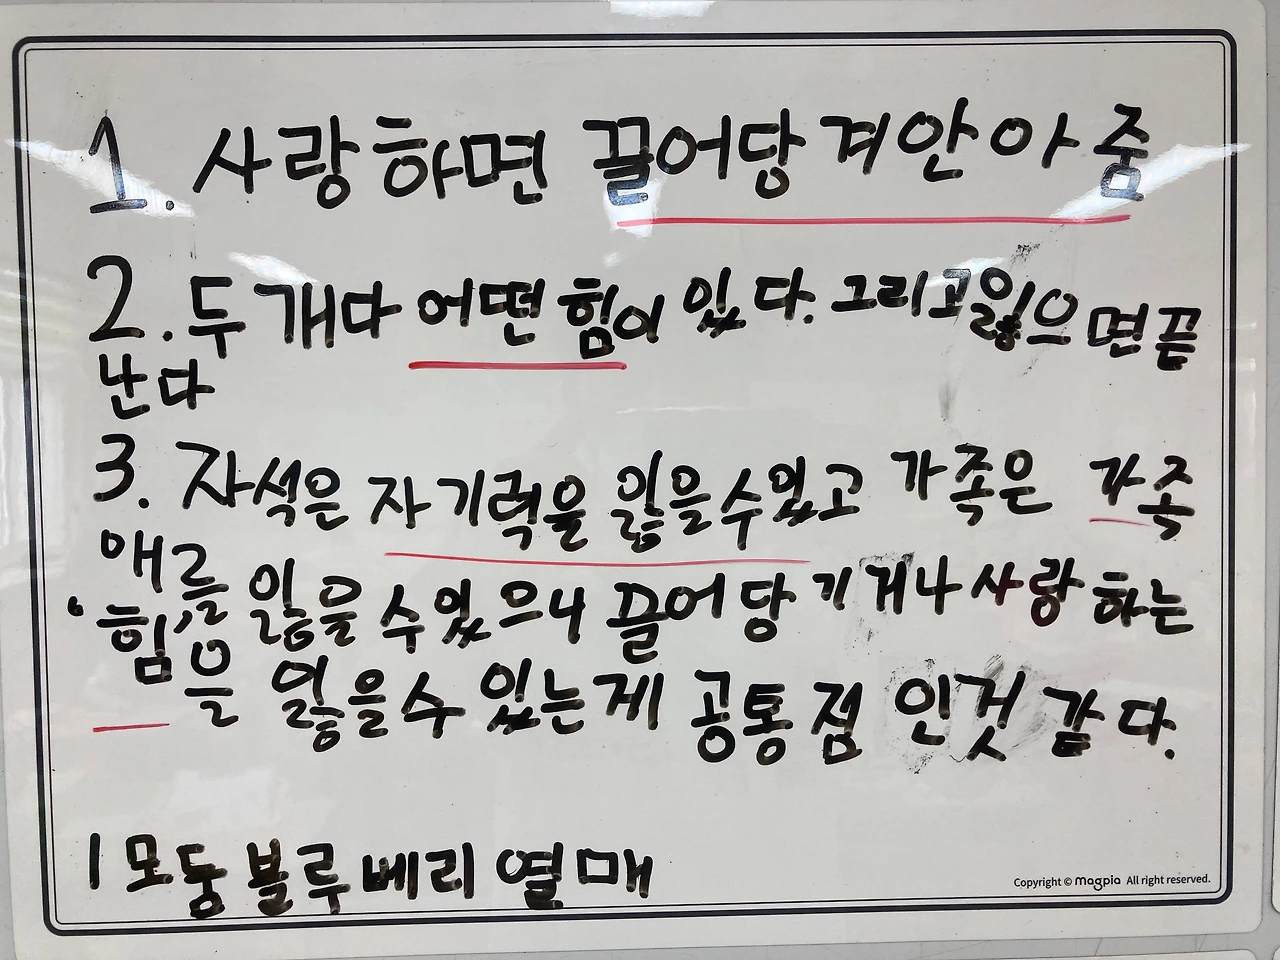 1. 사랑하면 끌어당겨안아줌
2. 두개다 어떤 힘이 있다. 그리고잃으면끝
난다
3. 자석은 자기력을 잃을수있고 가족은 가족
애를 잃을수있으니 끌어당기거나 사랑하는
'힘'을 잃을수 있는게 공통점 인것 같다.
1모둠블루베리열매
Copyright © magpia All right reserved.